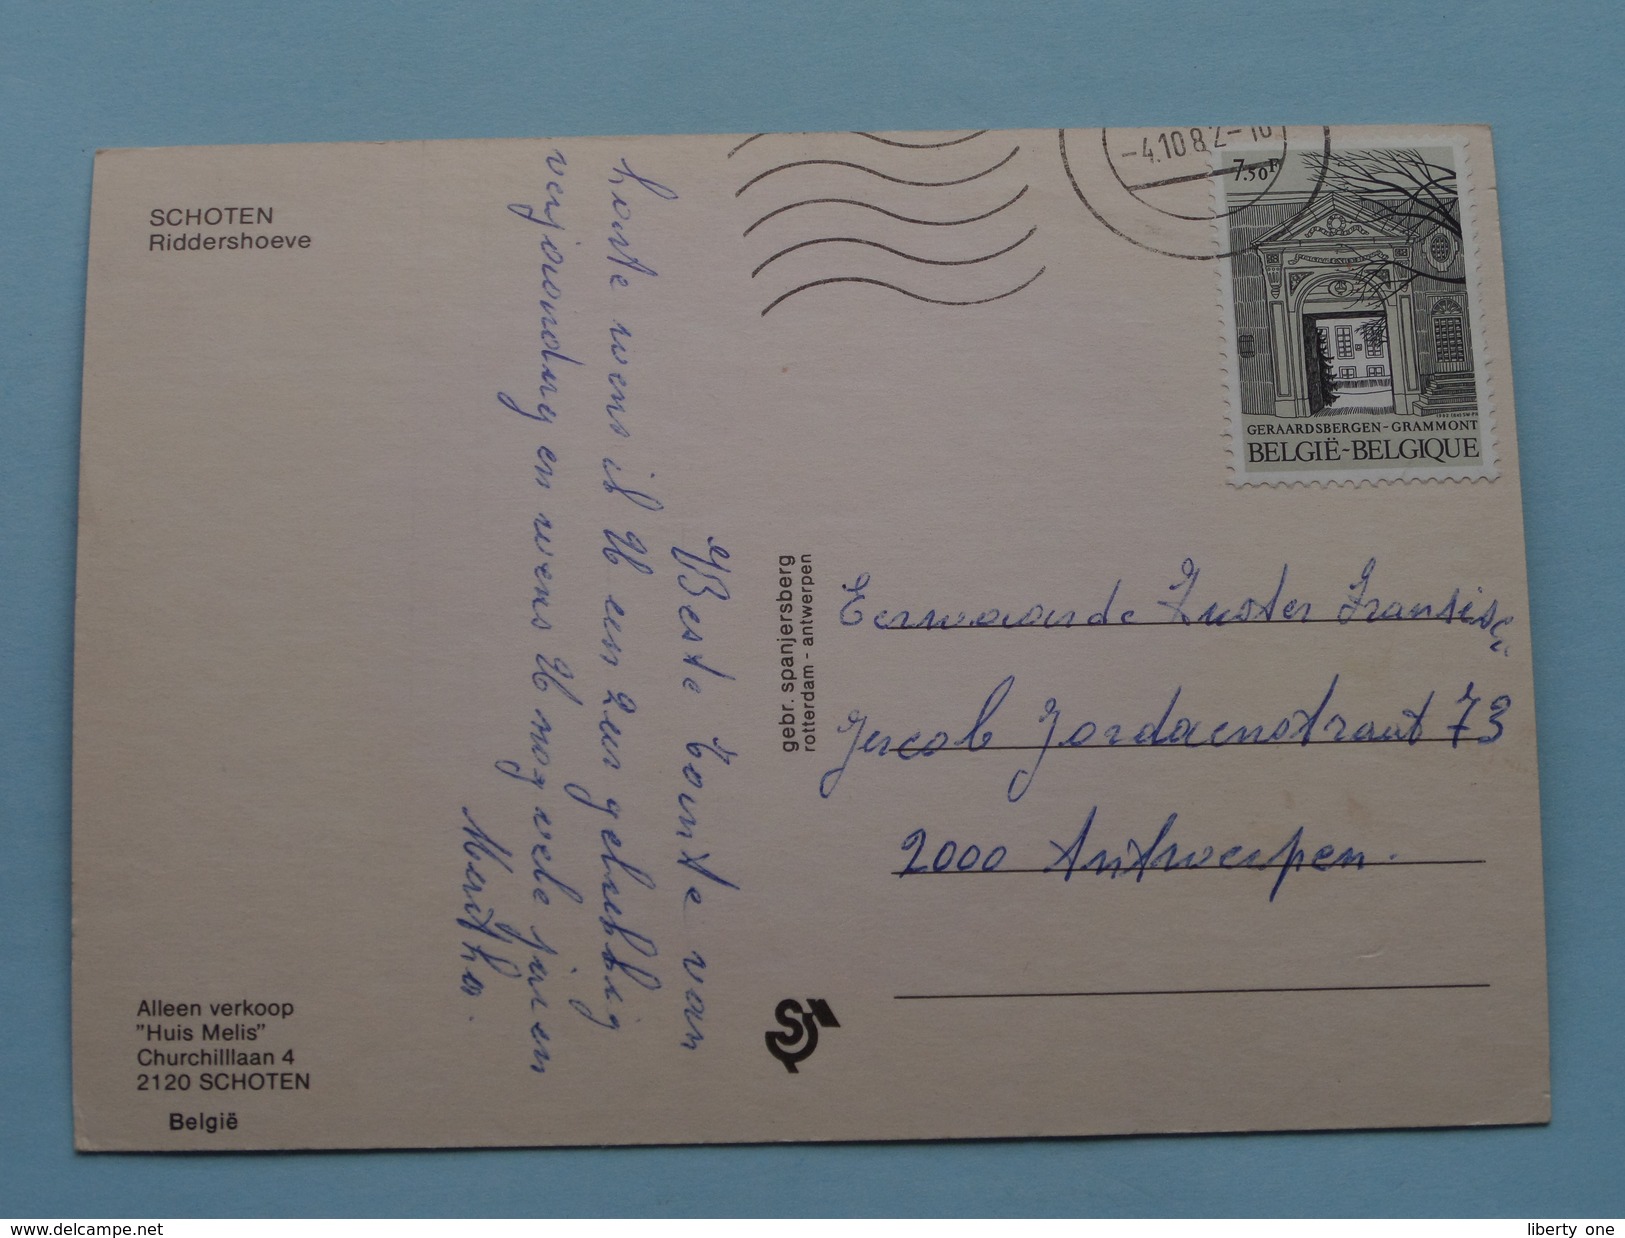 SCHOTEN
Riddershoeve
Beste Tante van
harte wens ik U een zeer gelukkig
verjaardag en wens U nog vele jaren
Martha.
Alleen verkoop
"Huis Melis"
Churchilllaan 4
2120 SCHOTEN
België
gebr. spanjersberg
rotterdam - antwerpen
-4.10.82-10
7.50F
GERAARDSBERGEN-GRAMMONT
BELGIË-BELGIQUE
Eerwaarde Zuster Fransisc
Jacob Jordaenstraat 73
2000 Antwerpen.
www.delcampe.net
liberty one